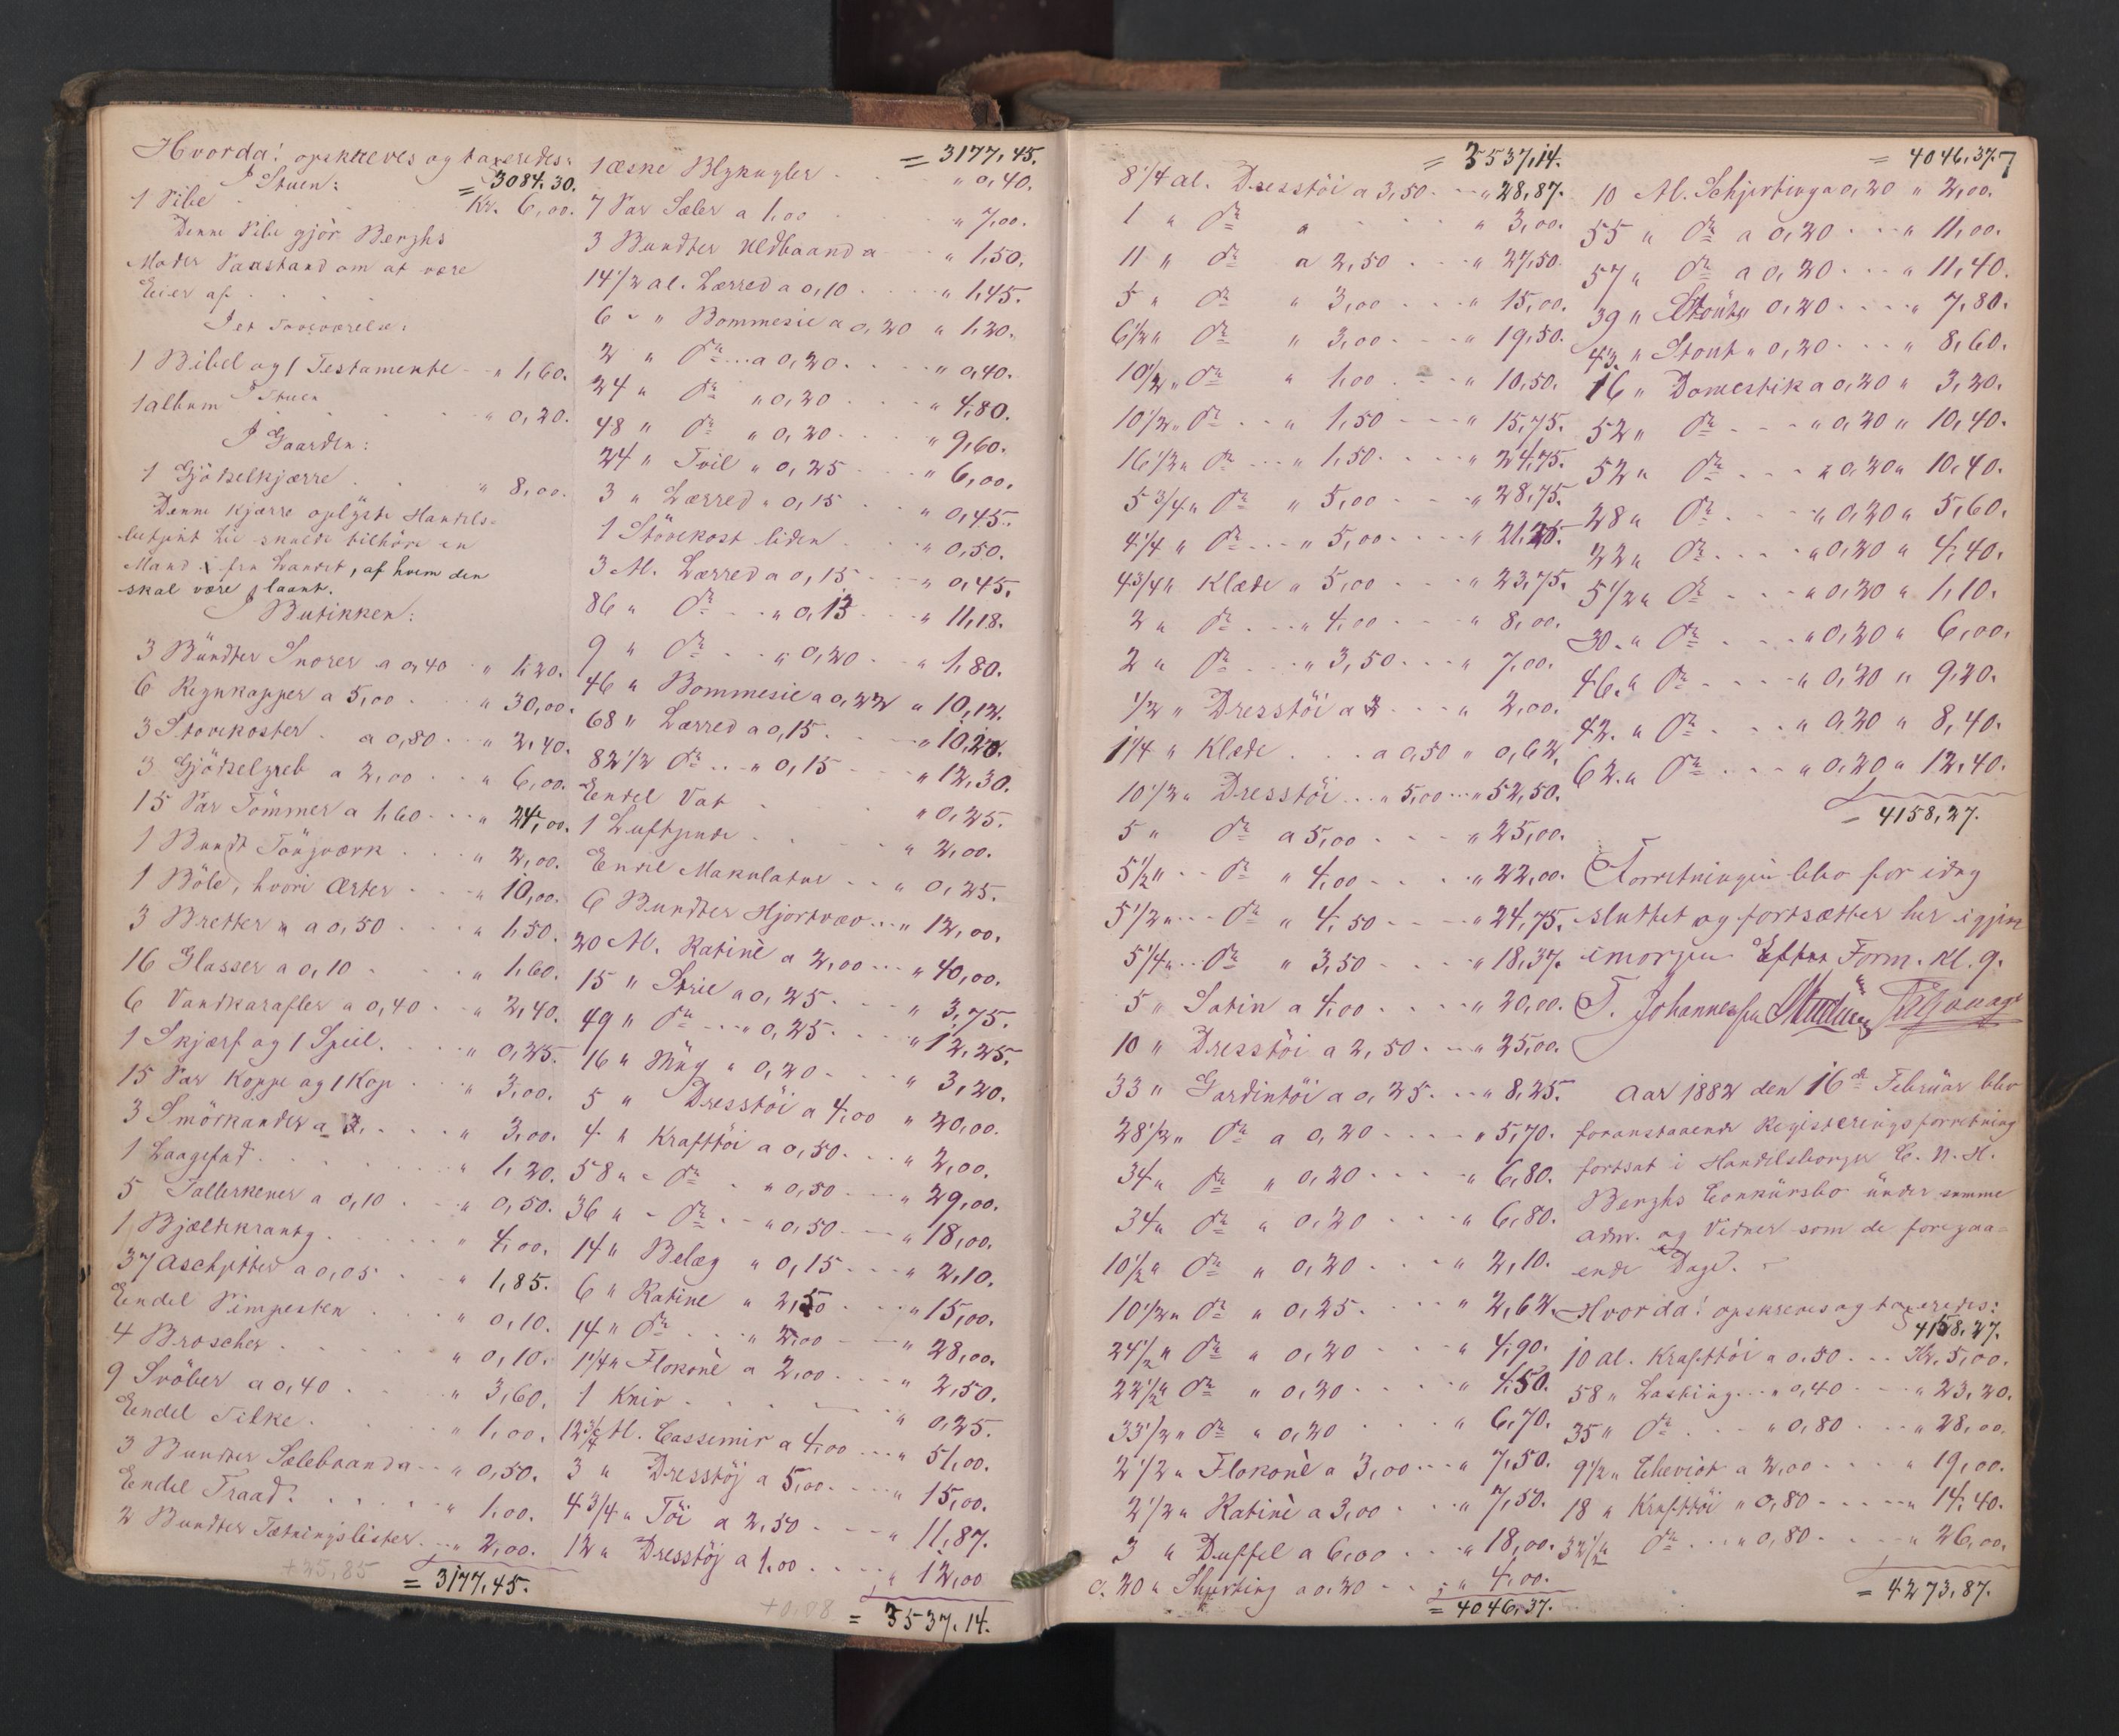 Hvorda! opskreves og taxeredes:
I Stuen: = 3084.30.
1 Pibe . . . Kr. 6,00.
Denne Pibe gjør Berghs
Moder Paastand om at være
Eier af . . . .
I et Soveværelse:
1 Bibel og 1 Testamente - " 1,60.
I Stuen
1 album . . . . " 0,20.
I Gaarden:
1 Gjödselkjærre . . " 8,00.
Denne Kjærre oplyste Handels-
betjent Lie skulde tilhöre en
Mand i fra Landet, af hvem den
skal være laant.
I Butikken:
3 Bundter Snorer a 0,40 " 1,20.
6 Regnkapper a 5,00 . " 30,00.
3 Stovekoster . a 0,80 . . " 2,40.
3 Gjödselgreb a 2,00 . . " 6,00.
15 Par Tömmer a 1,60 . . . " 24,00.
1 Bundt Töugværk . . . " 2,00.
1 Böle, hvori Ærter . . . " 10,00.
3 Bretter " a 0,50 . . . " 1,50.
16 Glasser a 0,10 . . . . " 1,60.
6 Vandkarafler a 0,40 . . " 2,40.
1 Skjærf og 1 Speil . . . " 0,25.
15 Par Koppe og 1 Kop . . " 3,00.
3 Smörkander a 3. . . . " 3,00.
1 Laagefad . . . . . . " 1,20.
5 Tallerkener a 0,10 . . . " 0,50.
1 Bjældekrants . . . . " 4,00.
37 Aschjetter a 0,05 . . " 1,85.
Endel Pimpesten . . . " 0,10.
4 Broscher . . . . . " 0,10.
9 Svöber a 0,40 . . . " 3,60.
Endel Silke . . . . . " 1,00.
3 Bundter Sælebaand a - - " 0,50.
Endel Traad . . . . . " 1,00.
2 Bundter Tætningslister . - . " 2,00.
+25,85
= 3177,45.
= 3177,45.
1 æske Blykugler . . . " 0,40.
7 Par Sæler a 1,00 . . " 7,00.
3 Bundter Uldbaand a - - " 1,50.
14 1/2 al. Lærred a 0,10 . . . . " 1,45.
6 - " Bommesie a 0,20 " 1,20.
2 " do . . . a 0,20 . . . . " 0,40.
24 " do " 0,20 . . . . " 4,80.
48 " do " 0,20 . . . " 9,60.
24 " Tvil " 0,25 . . . " 6,00.
3 " Lærred " 0,15 . . " 0,45.
1 Stövekost liden . . . " 0,50.
3 Al. Lærred a 0,15 . . . " 0,45.
86 " do . . . " 0,13 . . . " 11,18.
9 " do . . . " 0,20 . . " 1,80.
46 " Bommesie a 0,22 " 10,12.
68 " Lærred a 0,15 . . . " 10,20.
82 1/2 do . . . " 0,15 . . . " 12,30.
Endel Vat . . . " 0,25.
1 Luftpude . . . " 2,00.
Endel Makulatur . . . " 0,25.
6 Bundter Hjortvæv . . . " 12,00.
20 Al. Ratinè a 2,00 . . . " 40,00.
15 " Strie a 0,25 . . . " 3,75.
49 " do . . . " 0,25 . . . " 12,25.
16 " Müg " 0,20 . . . " 3,20.
5 " Dresstöi a 4,00 " 20,00.
4 " Krafttöi a 0,50 . . . " 2,00.
58 " - do . " 0,50 . . . " 29,00.
36 " - do . - " 0,50 . . . " 18,00.
14 " Belæg " 0,15 . . . " 2,10.
6 " Ratine " 2,50 . . . " 15,00.
14 " do . . . " 2,00 . . . " 28,00.
1 1/4 " Flokonè a 2,00 . . . " 2,50.
1 Kniv . . . . . . " 0,25.
12 3/4 Al. Cassemir a 4,00 . . . " 51,00.
3 " Dresstöj a 5,00 . . . " 15,00.
4 3/4 " Töi a 2,50 . . . " 11,87.
12 " Dresstöj a 1,00 . . . . " 12,00
+0,88 = 3537.14.
= 3537,14.
8 1/4 al. Dresstöi a 3,50 . . . " 28,87.
1 " do " . . . " 3,00.
11 " do a 2,50 . . . " 27,50.
5 " do " 3,00 . . . " 15,00.
6 1/2 " do " 3,00 . . . " 19,50.
10 1/2 " do " 1,00 . . . " 10,50.
10 1/2 " do . . " 1,50 . . . " 15,75.
16 1/2 " do . . . " 1,50 . . . " 24,75.
5 3/4 " do " 5,00 . . . " 28,75.
4 1/4 " do . . . " 5,00 . . . " 21,25.
4 3/4 " Klæde " 5,00 . . . " 23,75.
2 " do . . . " 4,00 . . . " 8,00.
2 " do . . . " 3,50 . . . " 7,00.
1/2 " Dresstöi a 2 . . . " 2,00.
1 1/4 " Klæde . . . a 0,50 " 0,62.
10 1/2 " Dresstöi . . . " 5,00 . . . " 52,50.
5 " do a 5,00 . . . " 25,00.
5 1/2 " . . do " 4,00 . . . " 22,00.
5 1/2 " . . . do " 4,50 . . . " 24,75.
5 1/4 " . . do " 3,50 . . . " 18,37.
5 " Satin a 4,00 . . . " 20,00.
10 " Dresstöi a 2,50 . . . " 25,00.
33 " Gardintöi a 0,25 . . . " 8,25.
28 1/2 " do a 0,20 . . . " 5,70.
34 " do " 0,20 . . . . " 6,80.
34 " do " 0,20 . . . " 6,80.
10 1/2 " do " 0,20 . . . " 2,10.
10 1/2 " do " 0,25 . . . " 2,62.
24 1/2 " do " 0,20 . . . " 4,90.
22 1/2 " do " 0,20 . . . " 4,50.
33 1/2 " do " 0,20 . . . " 6,70.
2 1/2 " Flokonè a 3,00 . . . " 7,50.
2 1/2 " Ratinè a 3,00 . . . " 7,50.
3 " Duffel a 6,00 . . . " 18,00.
c. 20 " Shjerting a 0,20 . . . " 4,00.
= 4046,37.
= 4046,37.
10 Al. Schjerting a 0,20 " 2,00.
55 " do a 0,20 . . . " 11,00.
57 " do a 0,20 . . . " 11,40.
39 " Stout " 0,20 . . . . " 7,80.
43 " Stout " 0,20 . . . " 8,60.
16 " Domestik a 0,20 " 3,20.
52 " do . . . " 0,20 " 10,40.
52 " do . . . " 0,20 " 10,40.
28 " do . . . " 0,20 " 5,60.
22 " do . . . . " 0,20 " 4,40.
5 1/2 " do . . . " 0,20 " 1,10.
30 " do . . . " 0,20 " 6,00.
46 " do . . . . " 0,20 " 9,20.
42 " do . . . " 0,20 " 8,40.
62 " do . . . " 0,20 " 12,40.
= 4158,27.
Forretningen blev for idag
sluttet og fortsætter her igjen
imorgen Form. Kl. 9.
T. Johannessen
Aar 1882 den 16de Februar blev
foranstaaende Registreringsforretning
fortsat i Handelsborger C. N. H.
Berghs Conkürsbo ünder samme
adm. og Vidner som de foregaa-
ende Dage. -
Hvorda! opskreves og taxeredes:
4158,27.
10 al. Krafttöi a 0,50 . . . Kr. 5,00.
58 " Lasting . . . " 0,40 . . . " 23,20.
35 " do . . . " 0,80 . . . " 28,00.
9 1/2 " Cheviot a 2,00 . . . " 19,00.
18 " Krafttöi " 0,80 . . . " 14,40.
32 1/2 " do . . . " 0,80 . . . " 26,00.
= 4273,87.